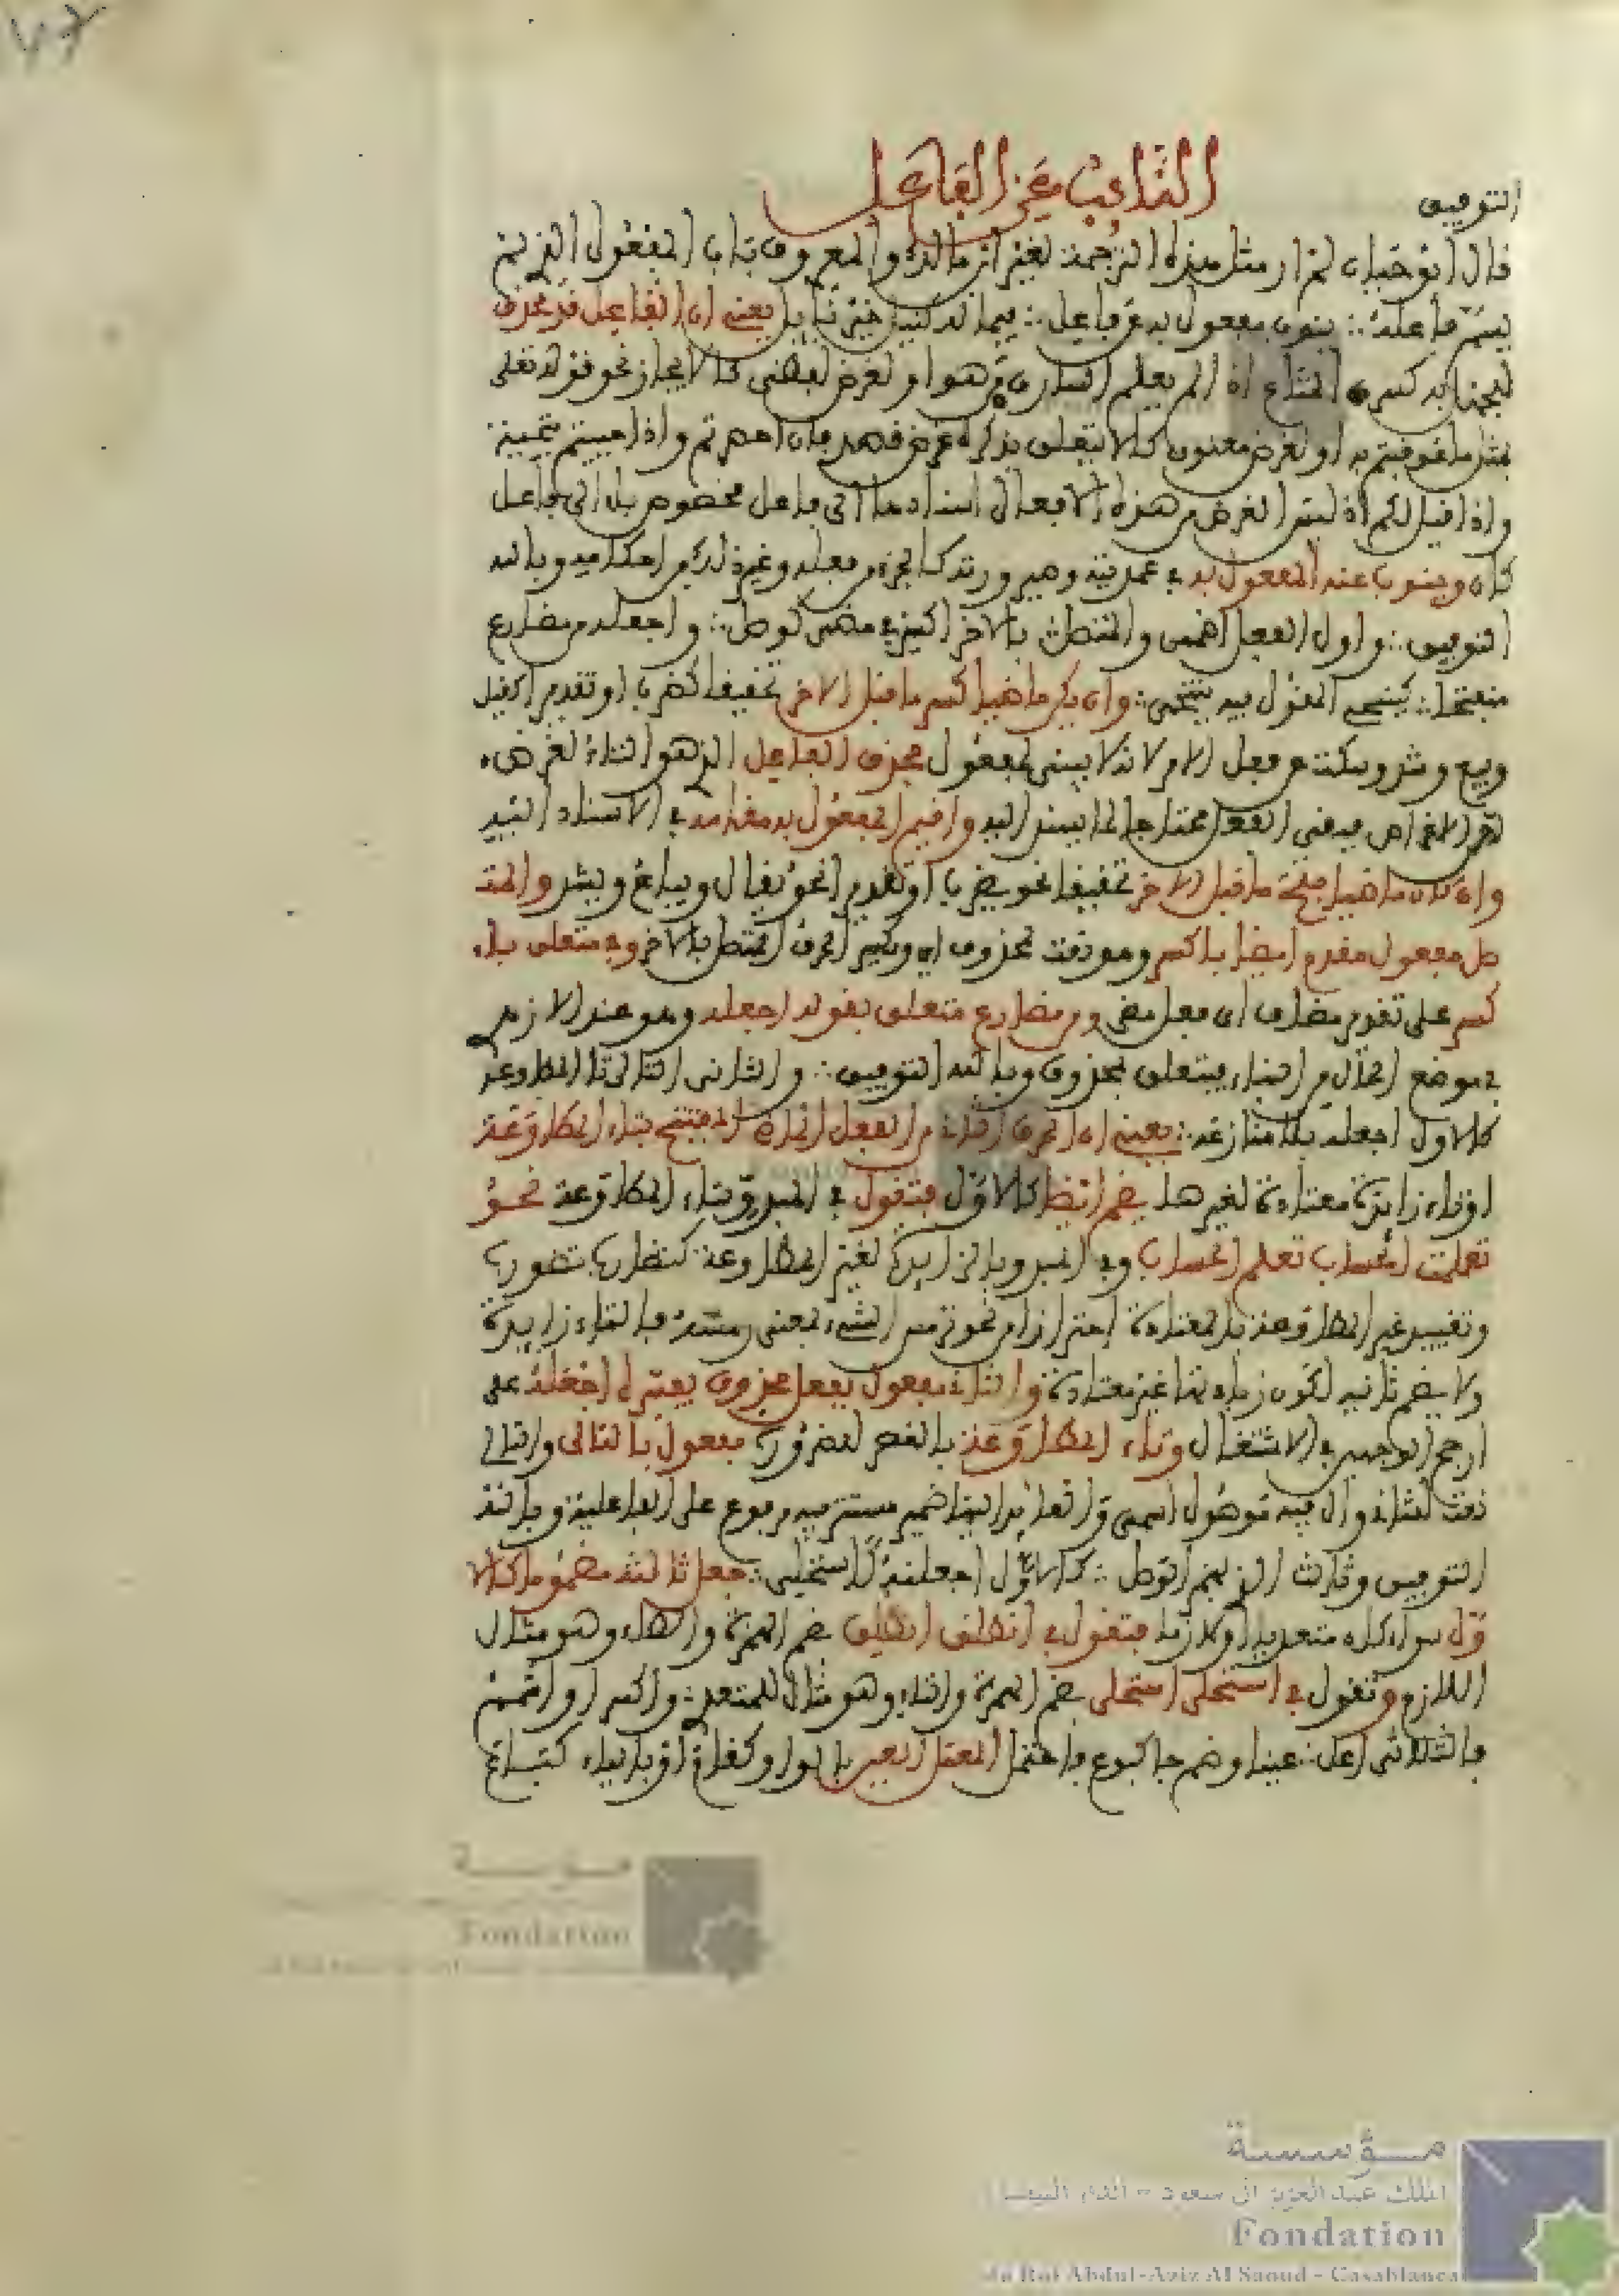 التوفيق
النائب عن الفاعل
قال ابو حيان لم ار مثل هذه الترجمة لغير ابن مالك والمعروف باب المفعول الذي لم
يسم فاعله ∴ ينوب مفعول به عن فاعل ∴ فيما له كنيل خير نائل يعني ان الفاعل قد يحذف
اذا لم يعلم السارق او لغرض لفظي كالايجاز نحو قوله تعلى
بمثل ما عوقبتم به او لغرض معنوي كالا يتعلق بذكره غرض فان احصرتم واذا حييتم بتحية
واذا قيل لكم اذ ليس الغرض من هذه الافعال اسنادها الى فاعل مخصوص بل الى فاعل
كان وينوب عنه المفعول به في عمديته وصيرورته كالجزء من فعله وغير ذلك من احكامه وبالله
التوفيق ∴ واول الفعل اضممن والمتصل بالاخر اكسر في مضي كوصل ∴ واجعله من مضارع
منفتحا ∴ كينتحي المقول فيه ينتحى ∴ وان يكن ماضيا كسر ما قبل الاخر تحقيقا كضرب او تقديرا كقيل
وبيع وشد وسكت عن فعل الامر لانه لا يبنى لمفعول بحذف الفاعل الذي هو الثناء لغرض
من الاغراض فيبقى الفعل محتاجا لما يسند اليه واقيم المفعول به مقامه في الاسناد اليه
وان كان ماضيا فتح ما قبل الاخر تحقيقا نحو يضرب او تقديرا نحو يقال ويباع ويشد والمتـ
صل مفعول مقدم ايضا باكسر وهو نعت لمحذوف اي واكسر الحرف المتصل بالاخر وفي متعلق باء
كسر على تقدير مضاف اي فعل مضي ومن مضارع متعلق بقوله اجعله وهو عند الازهري
في موضع الحال من الهاء فيتعلق بمحذوف وبالله التوفيق ∴ والثاني التالي تا المطاوعه
كالاول اجعله بلا منازعه ∴ يعني ان الحرف الثاني من الفعل الماضي المفتتح بتاء المطاوعة
او تاء زائدة معتادة لغيرها يضم ايضا كالاول فتقول في المبدوء بتاء المطاوعة نحو
تعلمت الحساب تعلم الحساب وفي المبدوء بالزائدة لغير المطاوعة
وتقييد غير المطاوعة بالمعتادة احترازا من نحو ترمس الشيء بمعنى رمسه فالتاء زائدة
ولا يضم ثانيه لكون زيادتها غير معتادة والثاني مفعول بفعل محذوف يفسر اجعله على
ارجح الوجهين في الاشتغال وتاء المطاوعة بالقصر للضرورة مفعول بالتالي والتالي
نعت للثاني وال فيه موصول اسمي والعائد اليها ضمير مستتر فيه مرفوع على الفاعلية وبالله
التوفيق وثالث الذي بهمز الوصل ∴ كالاول اجعلنه كاستحلي ∴ جعل ثالثه مضموما كالا
ول سواء كان متعديا او لازما فتقول في انطلق انطلق بضم الهمزة والطاء وهو مثال
اللازم وتقول في استحلى استحلي بضم الهمزة والتاء وهو مثال للمتعدي ∴ واكسر او اشمم
فا ثلاثي اعل ∴ عينا وضم جا كبوع فاحتمل المعتل العين بالواو كقال او بالياء كباع
مؤسسة
الملك عبد العزيز آل سعود - الدار البيضاء
Fondation
du Roi Abdul-Aziz Al Saoud - Casablanca